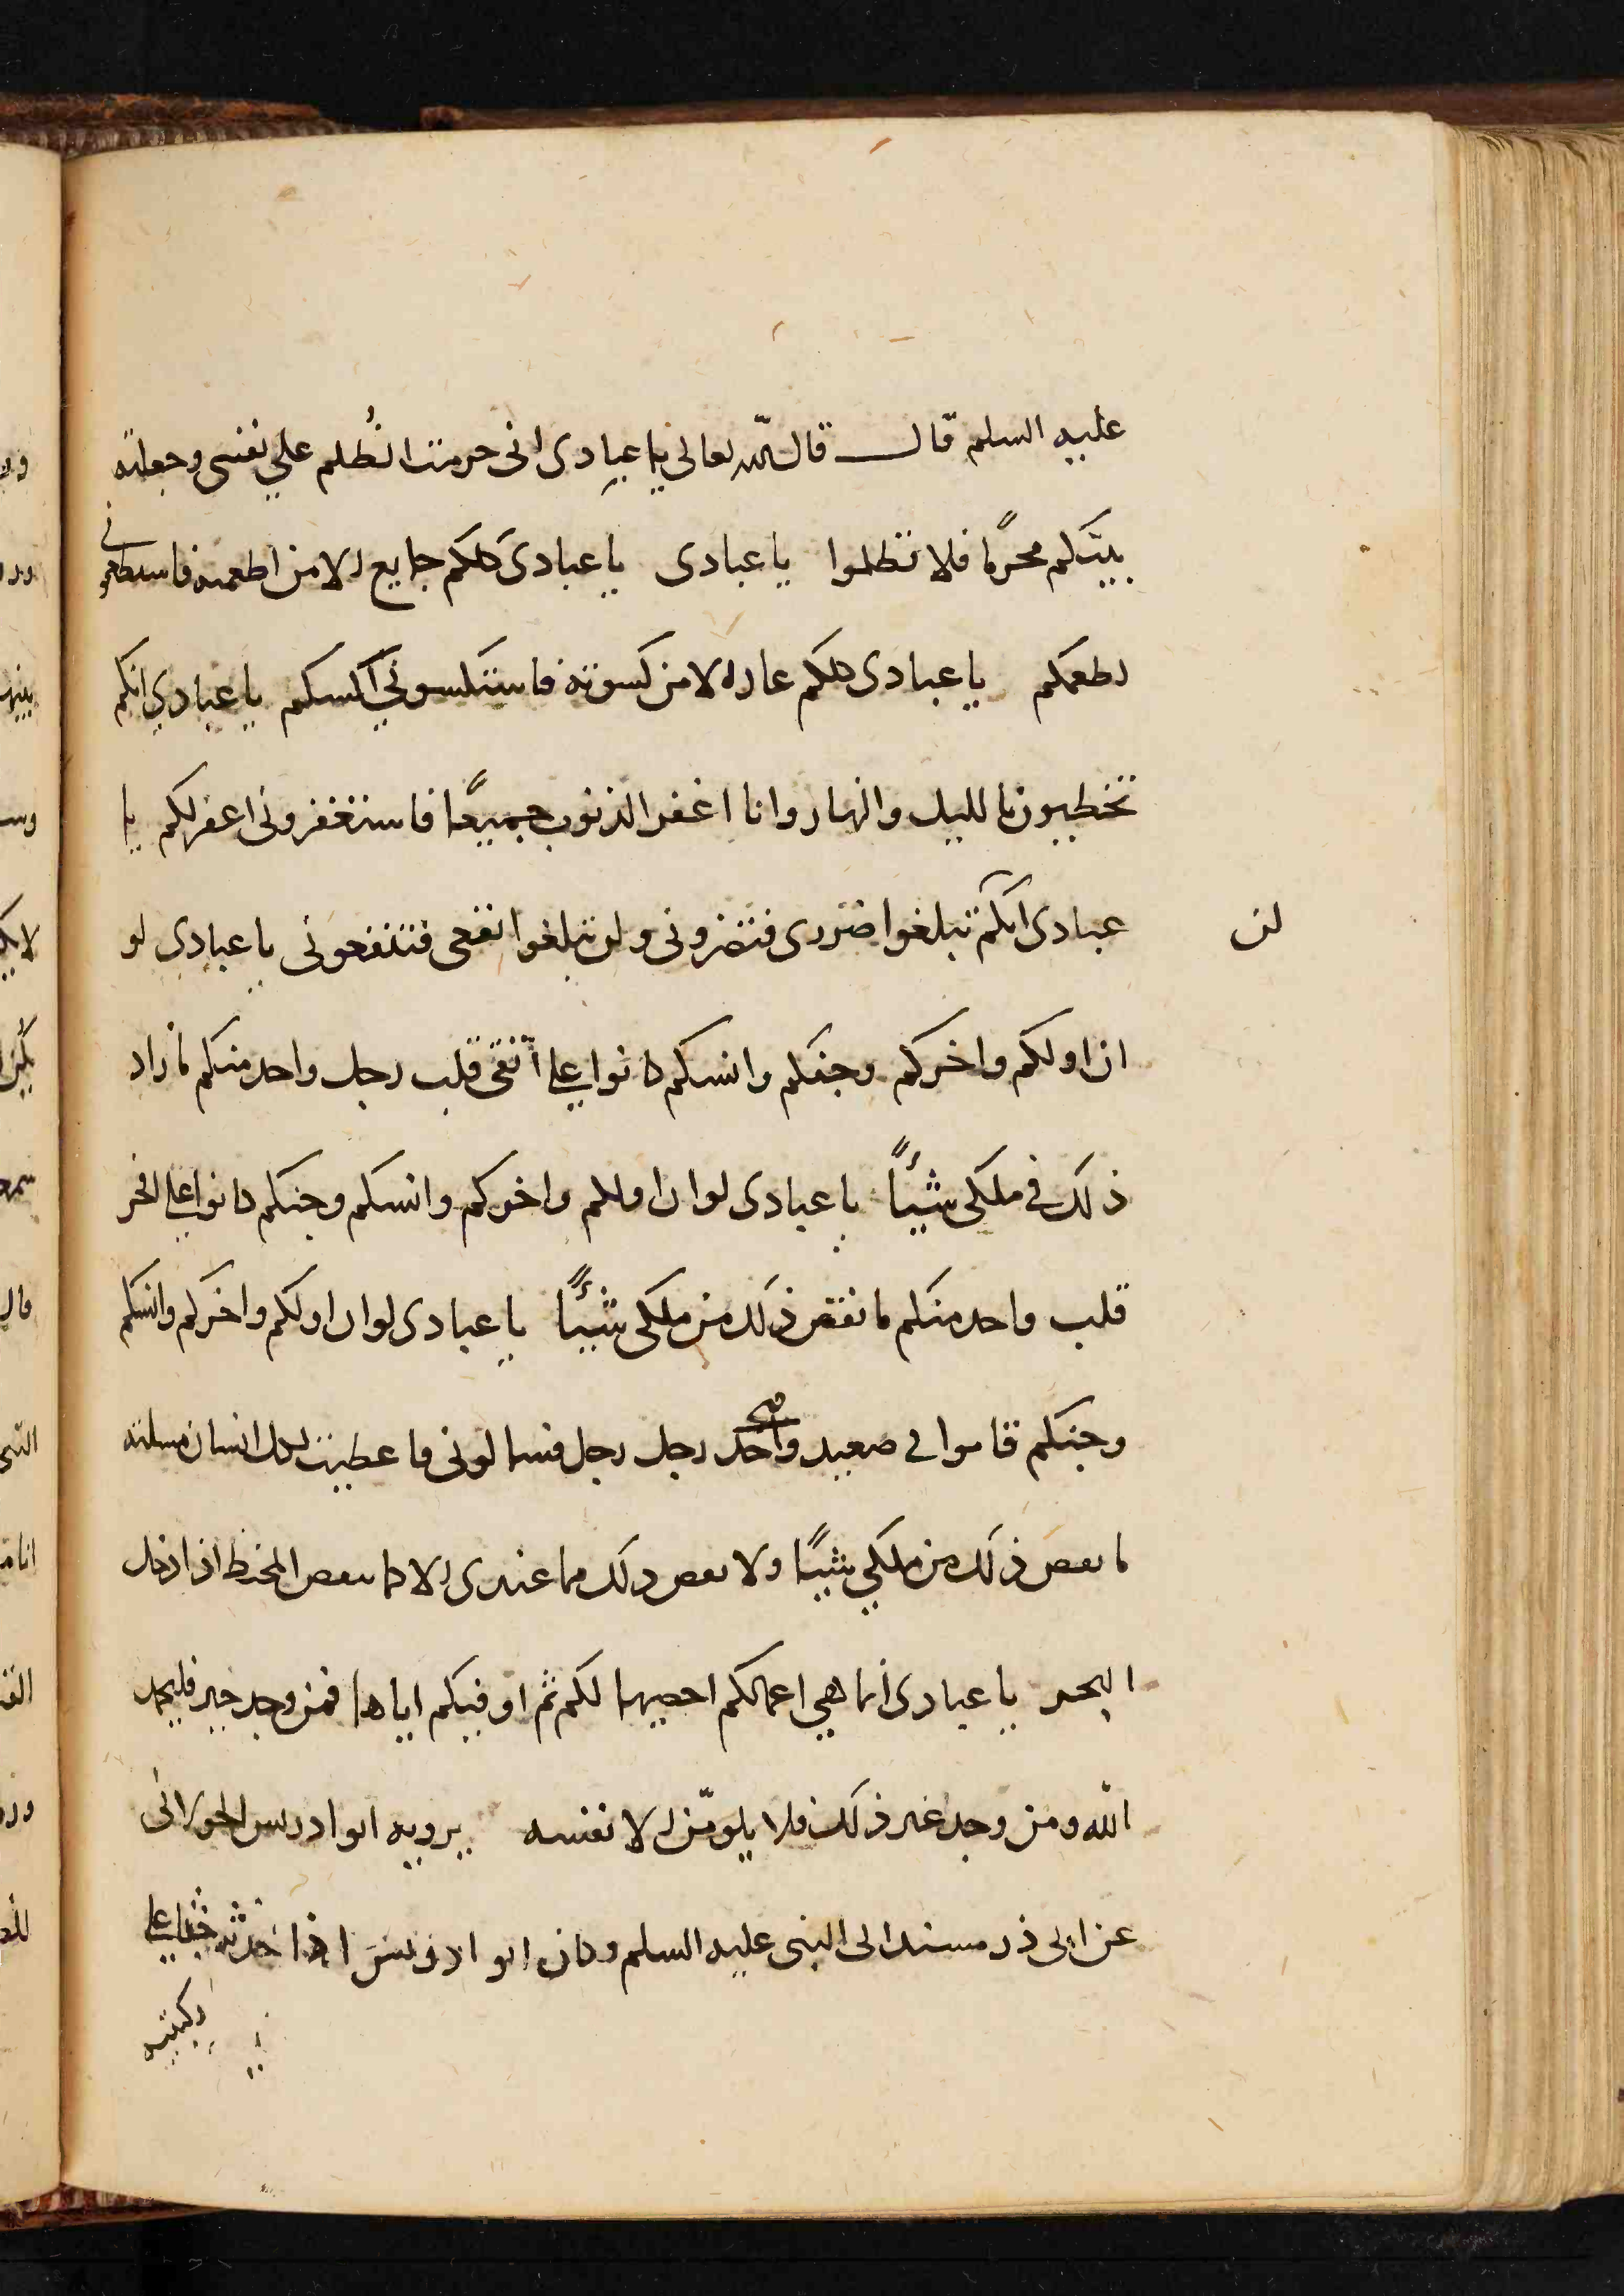 عليه السلم قال قال الله تعالى يا عبادى انى حرمت الظلم على نفسى وجعلته
بينكم محرما فلا تظلموا يا عبادى يا عبادى كلكم جايع الا من اطعمته فاستطعمونى
اطعمكم يا عبادى كلكم عار الا من كسوته فاستكسونى اكسكم يا عبادى انكم
تخطيون بالليل والنهار وانا اغفر الذنوب جميعًا فاستغفرونى اغفر لكم يا
عبادى انكم لن تبلغوا ضررى فتضرونى ولن تبلغوا نفعى فتنفعونى يا عبادى لو
ان اولكم واخركم وجنكم وانسكم كانوا على اتقى قلب رجل واحد منكم ما زاد
ذلك فى ملكى شيئًا يا عبادى لو ان اولكم واخركم وانسكم وجنكم كانوا على افجر
قلب واحد منكم ما نقص ذلك من ملكى شيئًا يا عبادى لو ان اولكم واخركم وانسكم
وجنكم قاموا فى صعيد واحد رجل رجل فسالونى فاعطيت كل انسان مسلته
ما نقص ذلك من ملكى شيئًا ولا نقص ذلك مما عندى الا كما ينقص المخيط اذا ادخل
البحر يا عبادى انما هي اعمالكم احصيها لكم ثم اوفيكم اياها فمن وجد خير فليحمد
الله ومن وجد غير ذلك فلا يلومّن الا نفسه يرويه ابو ادريس الخولانى
عن ابى ذر مسندا الى النبى عليه السلم وكان ابو ادريس اذا حدث به جثا على
ركبتيه